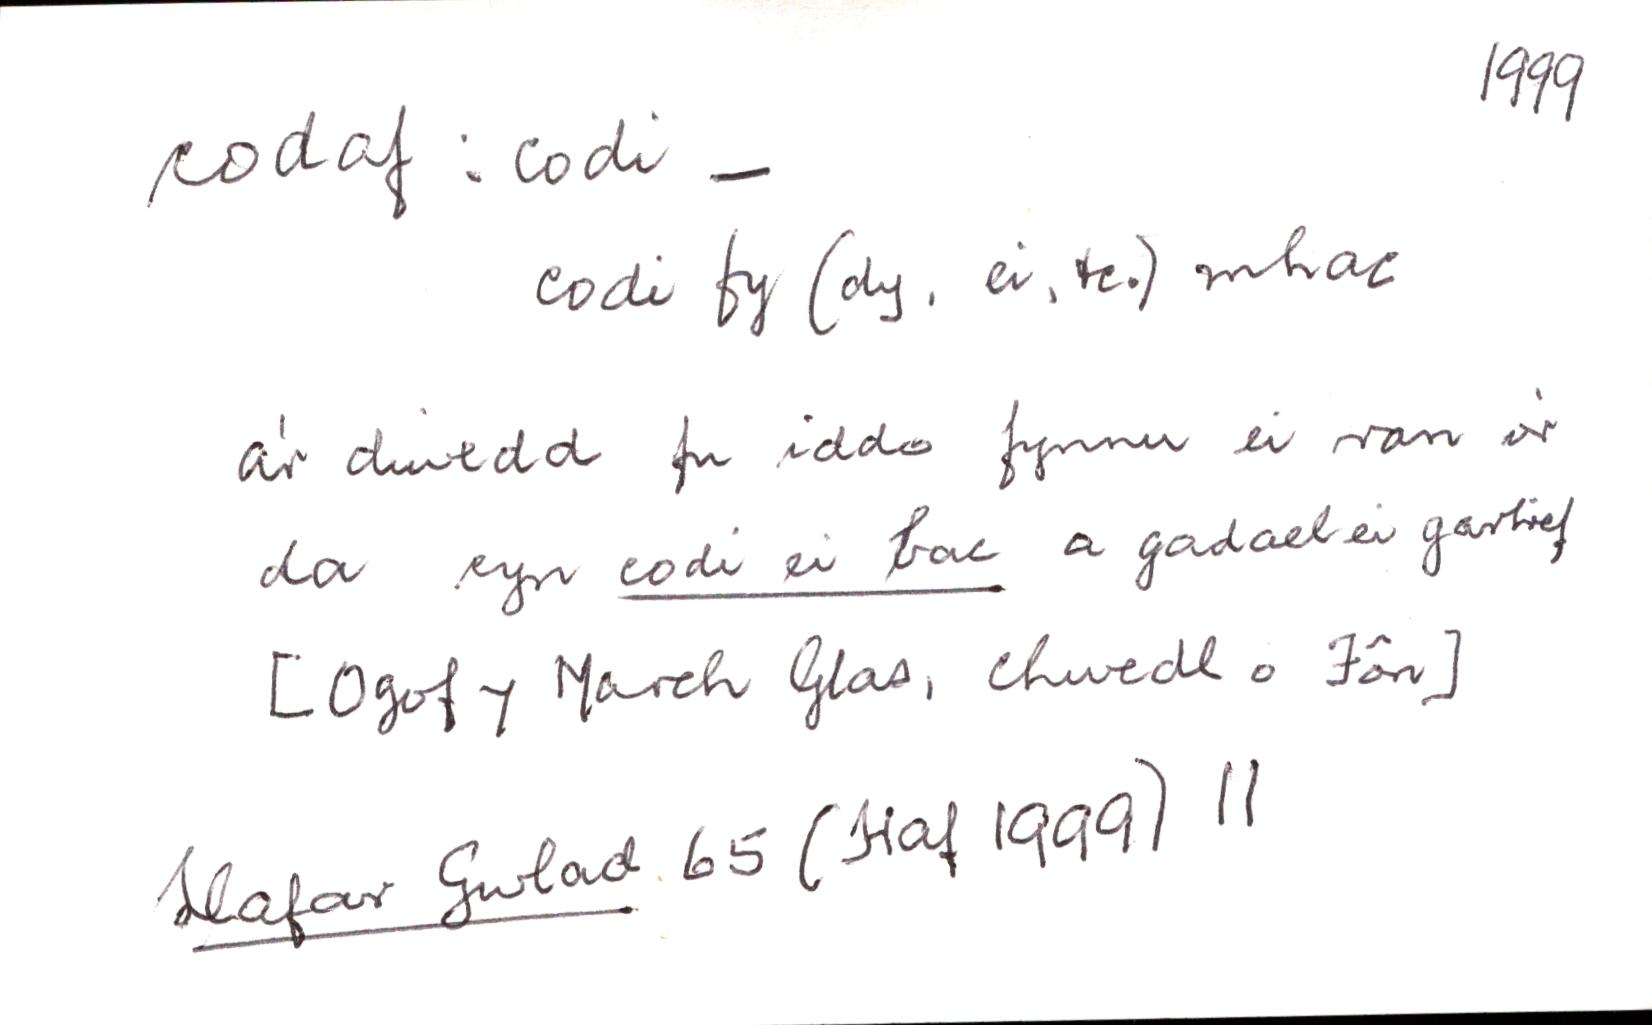 1999
codaf : codi –
codi fy (dy, ei, &c.) mhac
a'r diwedd fu iddo fynnu ei ran o'r
da cyn codi ei bac a gadael ei gartref
[Ogof y March Glas, chwedl o Fôn]
Llafar Gwlad 65 (Haf 1999) 11